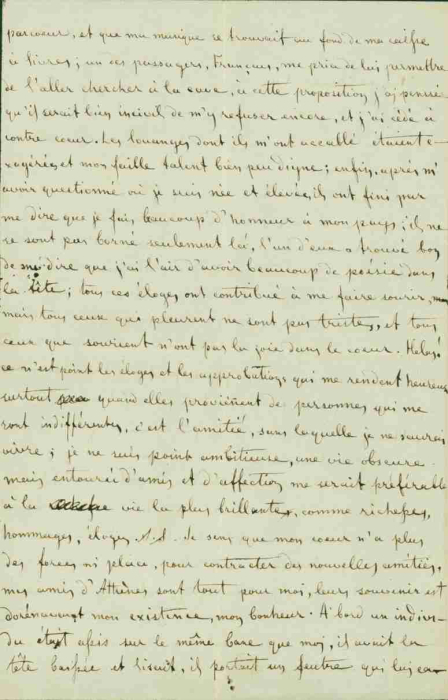 parcoeur, et que ma musique se trouvait au fond de ma caisse
à livres; un des passagers, Français, me pria de lui permettre
de l'aller chercher à la cave, à cette proposition j'ai pensée
qu'il serait bien incivil de m'y refuser encore, et j'ai cédé à
contre coeur. Les louanges dont ils m'ont accablé étaient e-
xagérées et mon faible talent bien peu digne; enfin, après m'
avoir questionné où je suis née et élevée, ils ont fini par
me dire que je fais beaucoup d'honneur à mon pays; il ne
se sont pas borné seulement là, l'un d'eux a trouvé bon
de me dire que j'ai l'air d'avoir beaucoup de poésie dans
la tête; tous ces éloges ont contribué à me faire sourir,
mais tous ceux qui pleurent ne sont pas tristes, et tous
ceux que sourient n'ont pas la joie dans le coeur. Helas!
ce n'est point les éloges et les approbations qui me rendent heureuse
surtout quand elles proviènent de personnes qui me
sont indifférentes, c'est l'amitié, sans laquelle je ne saurais
vivre; je ne suis point ambitieuse, une vie obscure
mais entourée d'amis et d'affection me serait préférable
à la vie la plus brillante, comme richesses,
hommages, éloges, je sens que mon coeur n'a plus
des forces ni place, pour contracter des nouvelles amitiées,
mes amis d'Athènes sont tout pour moi, leurs souvenir est
dorénavant mon existence, mon bonheur. A bord un indivi-
du était assis sur le même banc que moi, il avait la
tête baissée et lisait, il portait un feutre qui lui